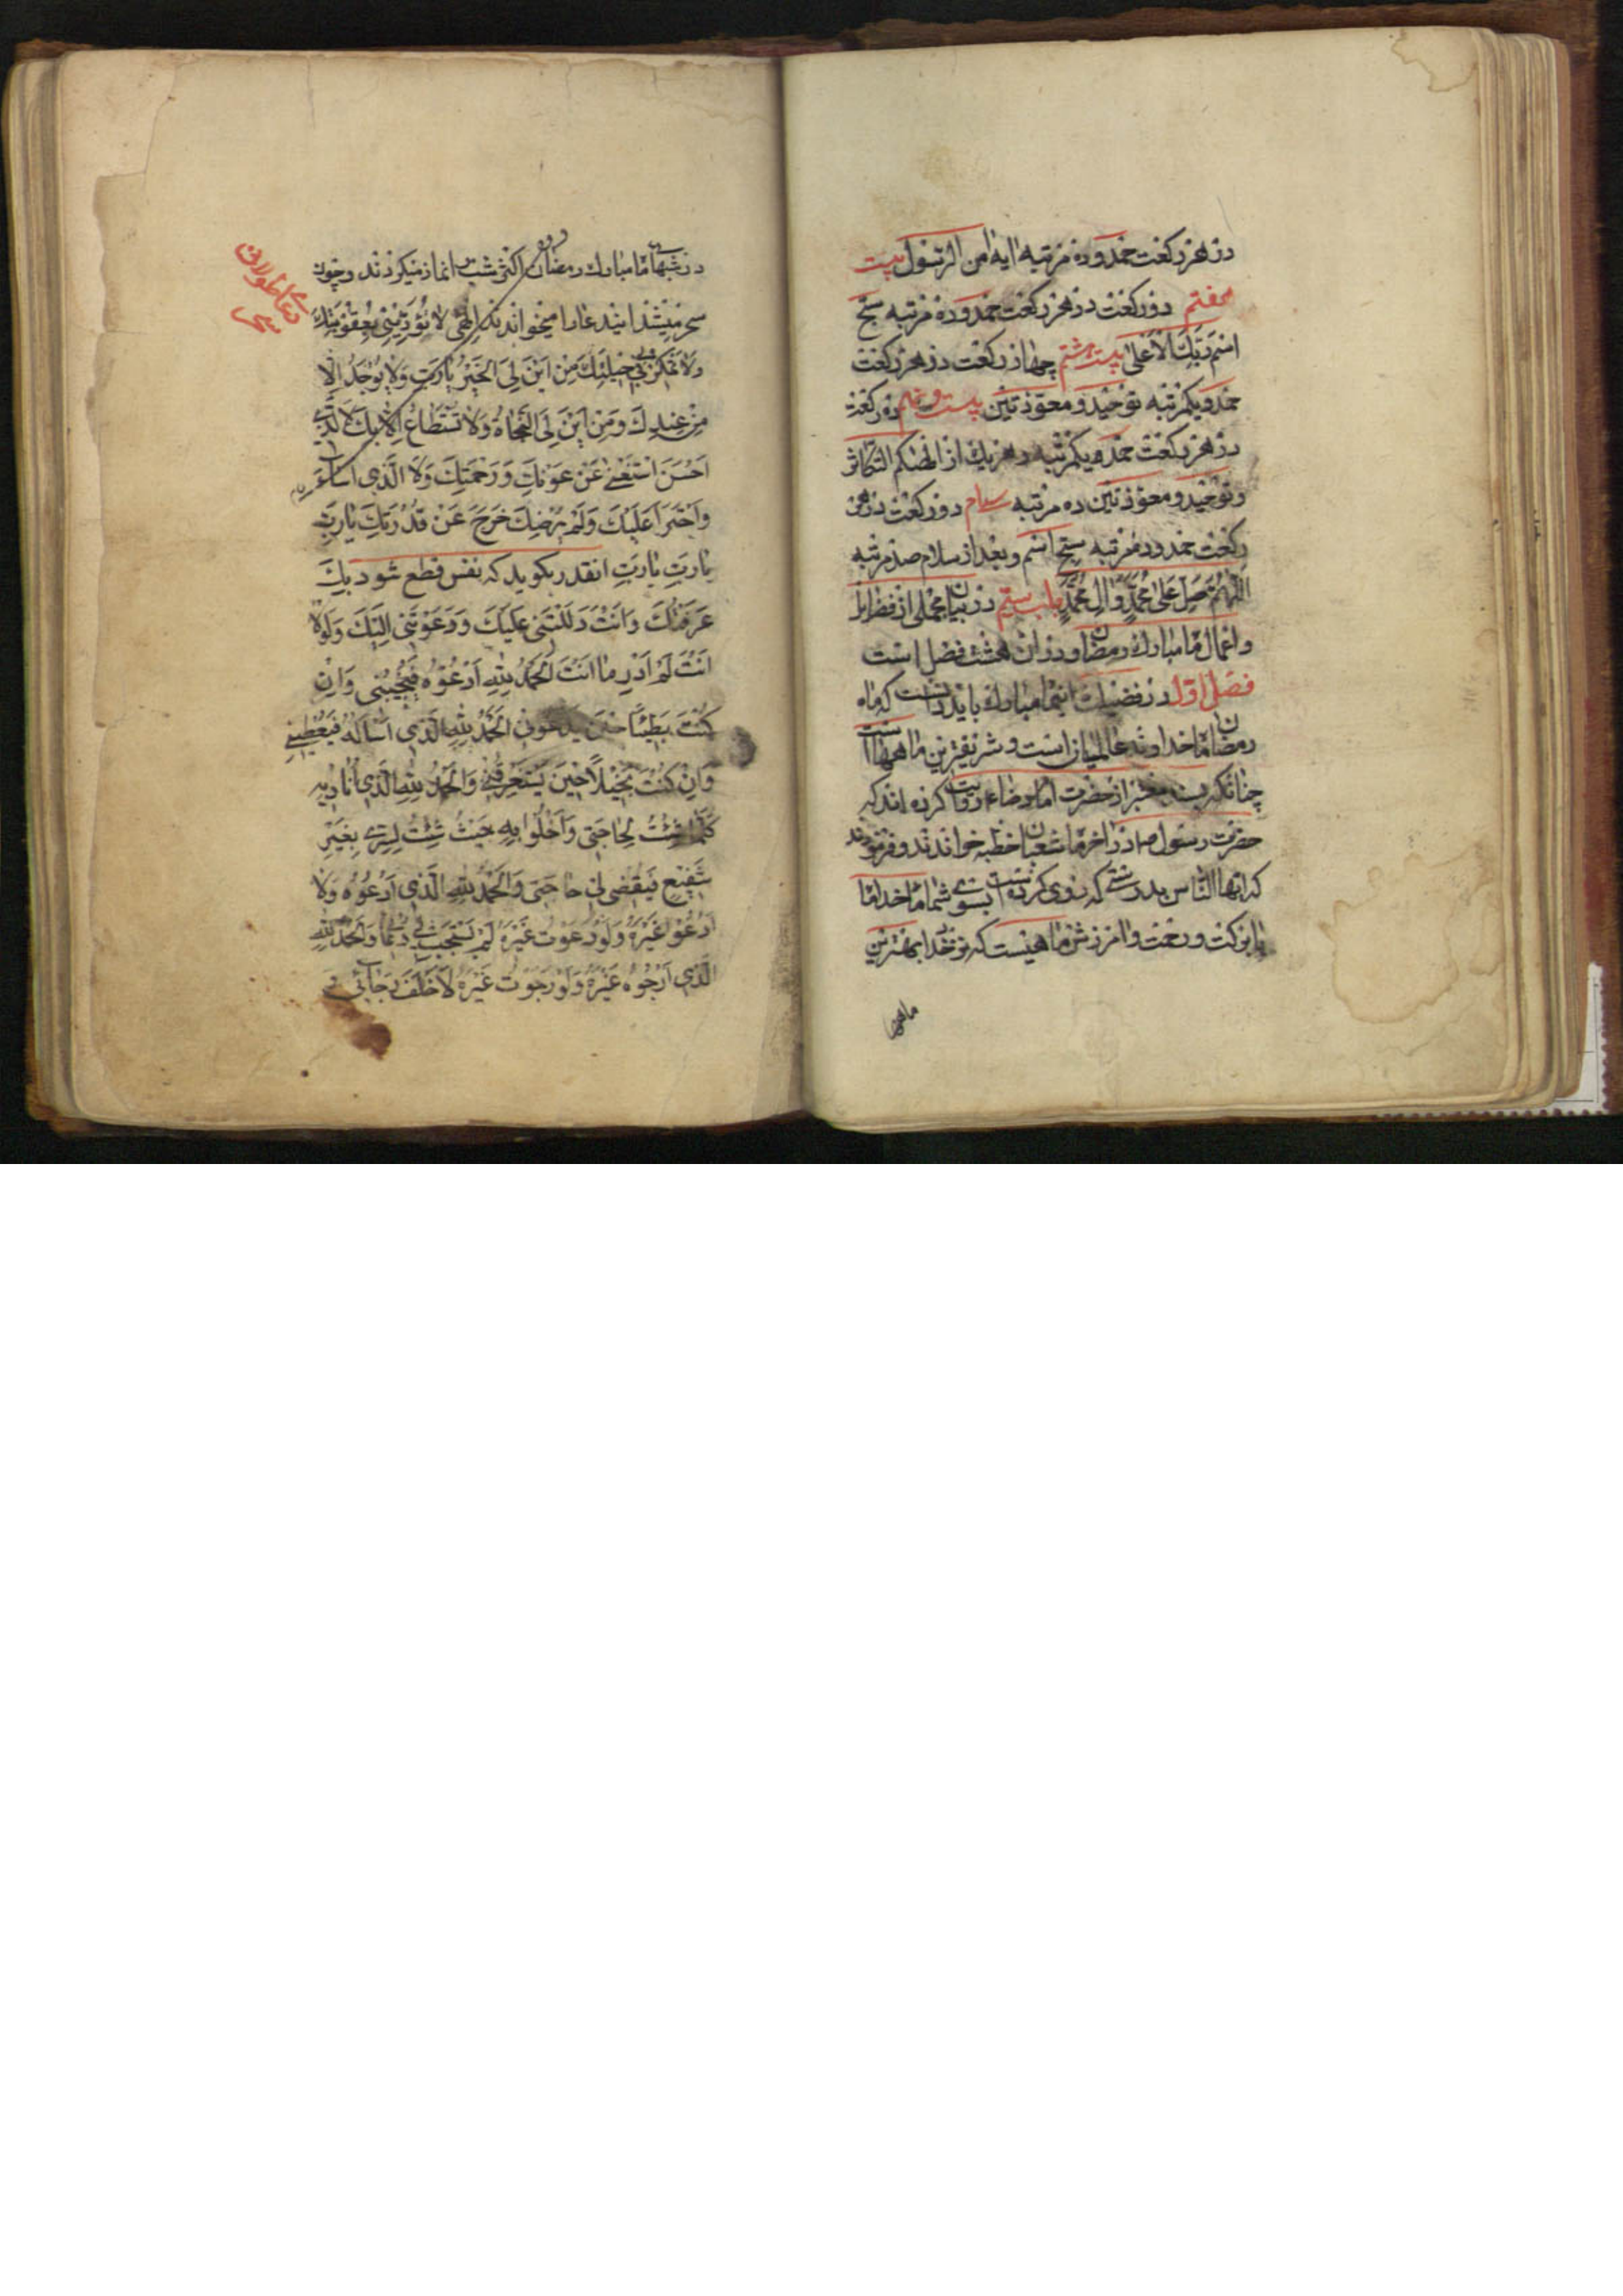 در هر رکعت حمد و ده مرتبه ایه امن الرسول بیست
هفتم دو رکعت در هر رکعت حمد و ده مرتبه سبح
اسم ربك الاعلی بیست هشتم چهار رکعت در هر رکعت
حمد و یکمرتبه توحید و معوذتین بیست و نهم دو رکعت
در هر رکعت حمد و یکمرتبه و هر یك از الهیکم التکاثر
و توحید و معوذتین ده مرتبه سی‌ام دو رکعت در هر
رکعت حمد و ده مرتبه سبح اسم و بعد از سلام صد مرتبه
اللهم صل علی محمد و ال محمد باب ستم در بیان مجملی از فضایل
و اعمال ماه مبارك رمضان و در ان هشت فضل است
فصل اول در فضیلت اینماه مبارك باید دانست که ماه
رمضان ماه خداوند عالمیان است و شریفترین ماهها است
چنانکه بسند معتبر از حضرت امام رضا ع روایت کرده اند که
حضرت رسول ص در اخر ماه شعبان خطبه خواندند و فرمودند
که ایها الناس بدرستی که روی کرده است بسوی شما ماه خدا ماه
با برکت و رحمت و امرزش ماهیست که نزد خدا بهترین
در شبهای ماه مبارك رمضان اکثر شب را نماز میکردند و چون
سحر میشد ایندعا را میخواندند الهی لا تؤدبنی بعقوبتك
ولا تمكر بی فی حیلتك من این لی الخیر یا رب ولا یوجد الا
من عندك ومن این لی النجاة ولا تستطاع الا بك لا الذی
احسن استغنی عن عونك و رحمتك ولا الذی اساء
واجترا علیك ولم یرضك خرج عن قدرتك یا رب
یا رب یا رب انقدر بکوید که نفس قطع شود بك
عرفتك وانت دللتنی علیك و دعوتنی الیك ولولا
انت لم ادر ما انت الحمد لله ادعوه فیجیبنی وان
كنت بطیئا حین یدعونی الحمد لله الذی اساله فیعطینی
وان كنت بخیلا حین یستقرضنی والحمد لله الذی انادیه
كلما شئت لحاجتی واخلوا به حیث شئت لسری بغیر
شفیع فیقضی لی حاجتی والحمد لله الذی ادعوه ولا
ادعو غیره ولو دعوت غیره لم یستجب لی دعائی والحمد لله
الذی ارجوه غیره ولو رجوت غیره لاخلف رجائی